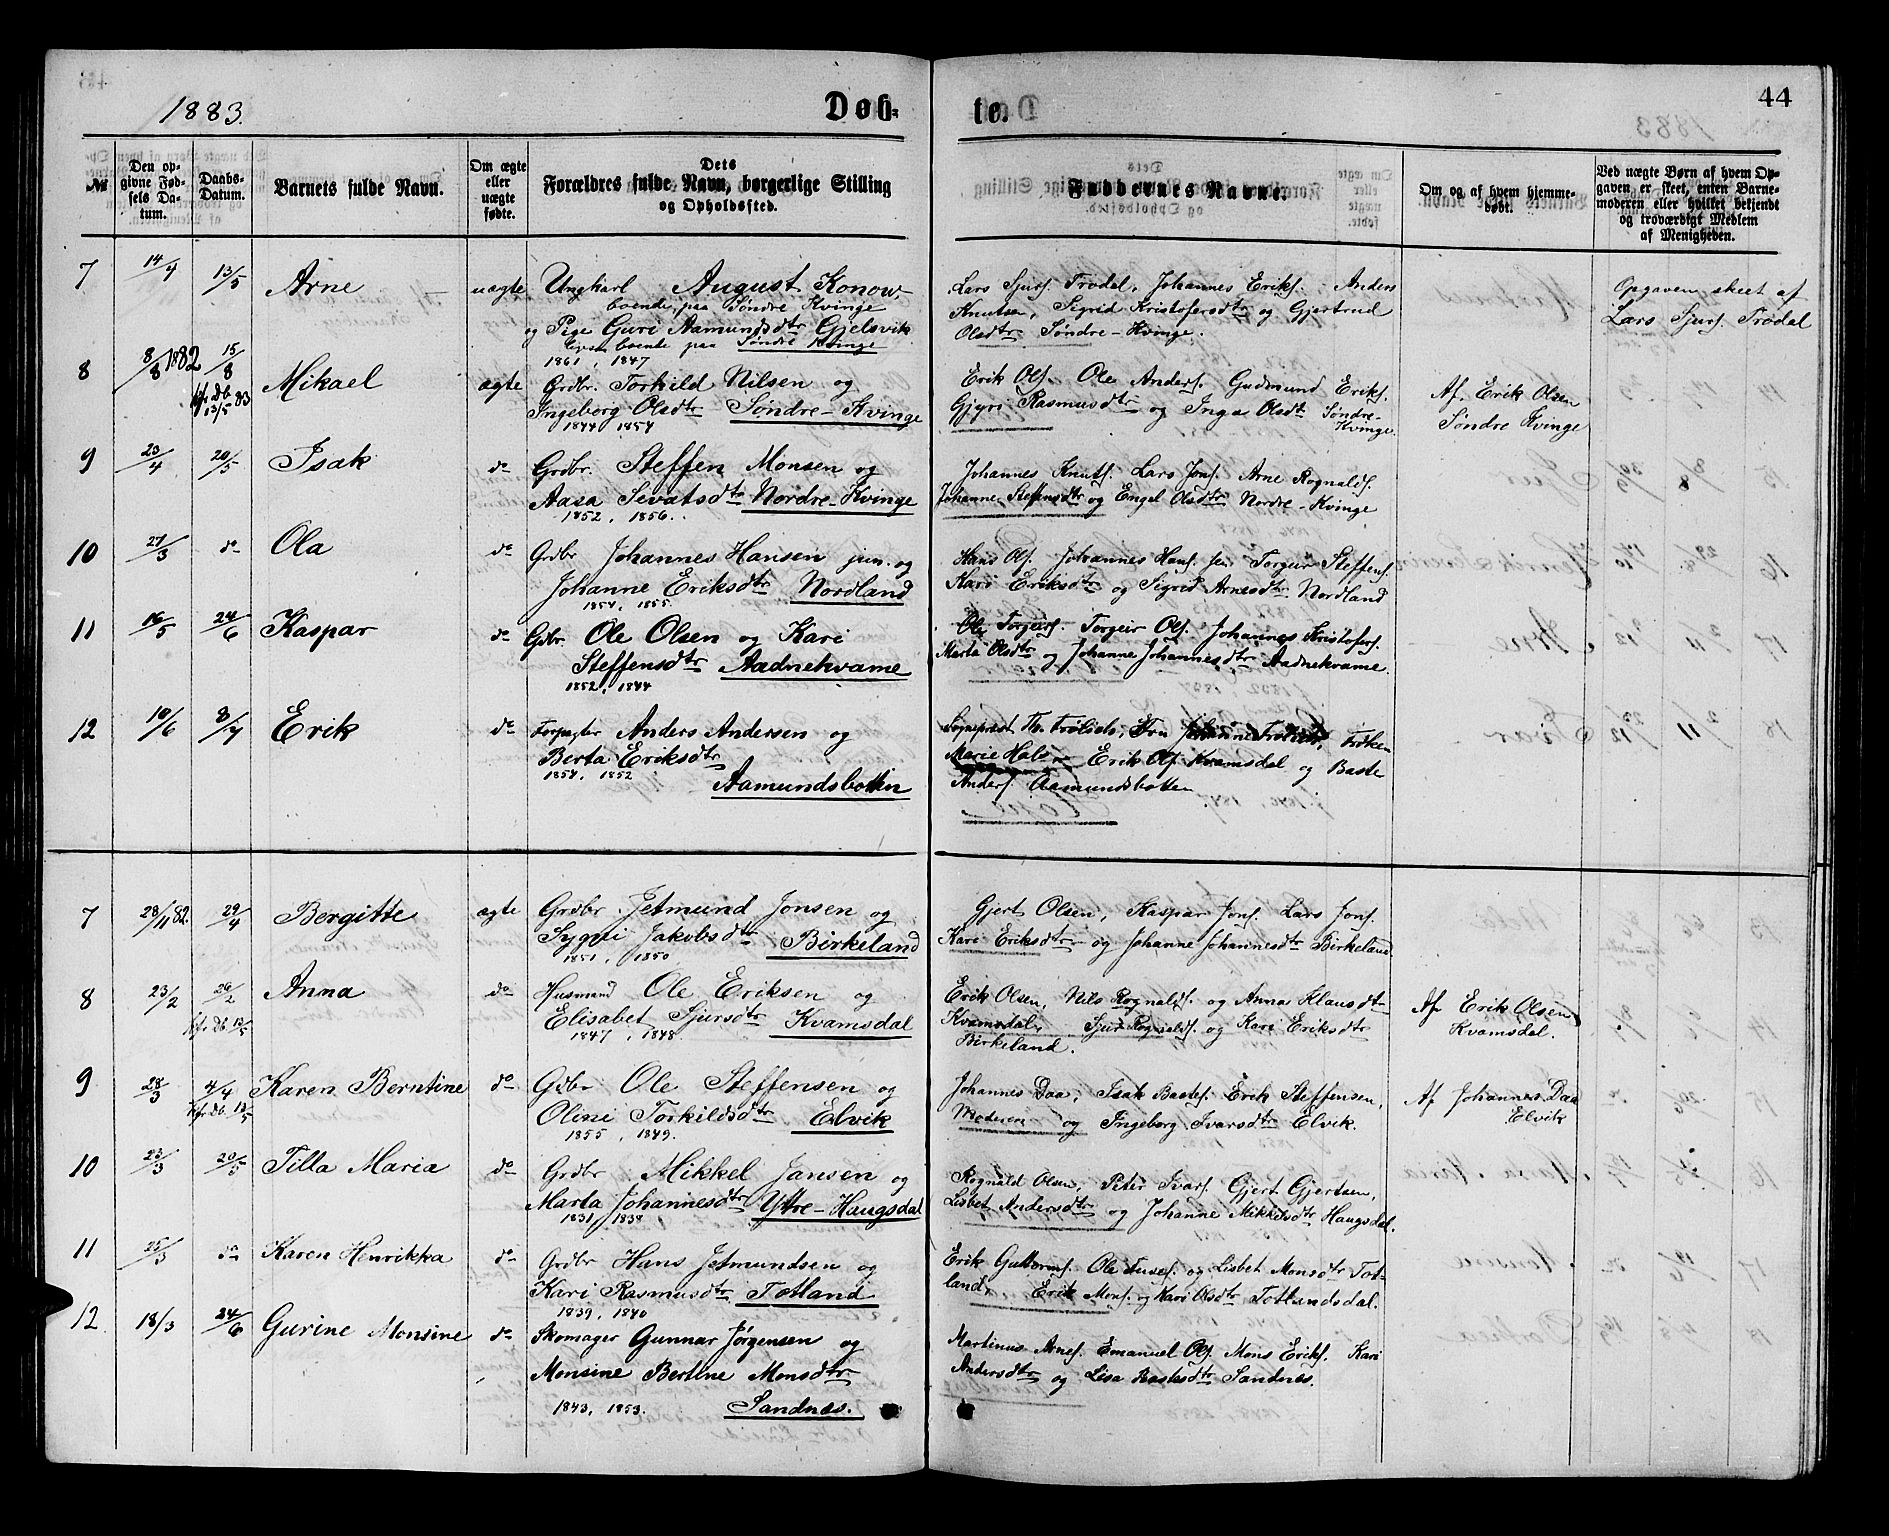 1883.
Døb-
te.
44
№
Den op-
givne Fød-
sels Da-
tum.
Daabs-
Datum.
Barnets fulde Navn.
Om ægte
eller
uægte
fødte.
Dets
Forældres fulde Navn, borgerlige Stilling
og Opholdssted.
Faddernes Navne.
Om og af hvem hjemme-
døbt.
Ved uægte Børn af hvem Op-
gaven er skeet, enten Barne-
moderen eller hvilket bekjendt
og troværdigt Medlem
af Menigheden.
7 14/4 13/5 Arne uægte Ungkarl August Konow,
boende paa Søndre Kvinge
og Pige Guri Aamundsdtr Gjelsvik
boende paa Søndre Kvinge
1861, 1847
Lars Sjurs. Trodal, Johannes Eriks. Anders
Knutsen, Sigrid Kristofersdtr og Gjertrud
Olsdtr Søndre-Kvinge.
Opgaven skeet af
Lars Sjurs. Trodal
8 8/8 1882 15/8 Mikael ægte Grdbr. Torkild Nilsen og
kfr. Db. 13/5 83
Ingeborg Olsdtr Søndre-Kvinge
1844 1854
Erik Ols. Ole Anders. Gudmund Eriks.
Gjyri Rasmusdtr og Inga Olsdtr Søndre-
Kvinge.
Af Erik Olsen
Søndre Kvinge
9 23/4 20/5 Isak do Grdbr. Steffen Monsen og
Aasa Sevatsdtr Nordre-Kvinge
1852, 1856.
Johannes Knuts. Lars Jons. Arne Rognalds.
Johanne Steffensdtr og Engel Olsdtr Nordre-Kvinge
10 27/3 do Ola do Grdbr Johannes Hansen jun. og
Johanne Eriksdtr Nordland
1854, 1855.
Hans Ols. Johannes Hans. sen. Torgeir Steffens.
Kari Eriksdtr og Sigrid Arnesdtr Nordland
11 16/5 24/6 Kaspar do Gdbr. Ole Olsen og Kari
Steffensdtr Aadnekvame
1852, 1844
Ole Torgeirs. Torgeir Ols. Johannes Kristofers.
Marta Olsdtr og Johanne Johannesdtr Aadnekvame.
12 10/6 8/7 Erik do Forpagter Anders Andersen og
Berta Eriksdtr
1854, 1852
Aamundsbotten
Sogneprest Th. Frølich, Fru Johanne Frølich, Frøken
Marie Erik Ols. Kvamsdal og Baste
Anders. Aamundsbotten
7 28/11 82. 29/4 Bergitte ægte Grdbr Jetmund Jonsen og
Sygni Jakobsdtr Birkeland
1851, 1850
Gjert Olsen, Kaspar Jons. Lars Jons.
Kari Eriksdtr og Johanne Johannesdtr Birkeland
8 23/2 26/2 Anna do Husmand Ole Eriksen og
kfr. Db. 13/5
Elisabet Sjursdtr Kvamsdal
1847, 1848.
Erik Olsen, Nils Rognalds. og Anna Klausdtr
Kvamsdal, Sjur Rognalds. og Kari Eriksdtr
Birkeland.
Af Erik Olsen
Kvamsdal.
9 28/3 4/4 Karen Berntine do Gdbr Ole Steffensen og
kfr. Db. 13/5
Oline Torkildsdtr Elvik
1855, 1849.
Johannes Daa, Isak Bastes. Erik Steffensen,
Moderen og Ingeborg Ivarsdtr Elvik.
Af Johannes Daa
Elvik
10 23/3 20/5 Tilla Maria do Grdbr Mikkel Jansen og
Marta Johannesdtr Ytre-Haugsdal
1831, 1838
Rognald Olsen, Peter Ivars. Gjert Gjertsen,
Lisbet Andersdtr og Johanne Mikkelsdtr Haugsdal.
11 25/3 do Karen Henrikka do Grdbr Hans Jetmundsen og
Kari Rasmusdtr Totland
1839, 1840
Erik Guttorms. Ole Tuses. og Lisbet Monsdtr Tot-
land, Erik Mons. og Kari Olsdtr Totlandsdal.
12 18/3 24/6 Gurine Monsine do Skomager Gunnar Jørgensen og
Monsine Bertine Monsdtr
1843, 1853. Sandnes.
Martinus Arnes. Emanuel Ols. Mons Eriks. Kari
Andersdtr og Lisa Bastesdtr Sandnes.